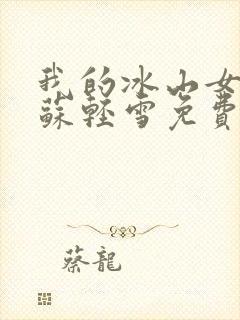 我的冰山女
蘇輕雪免費
蔡龍